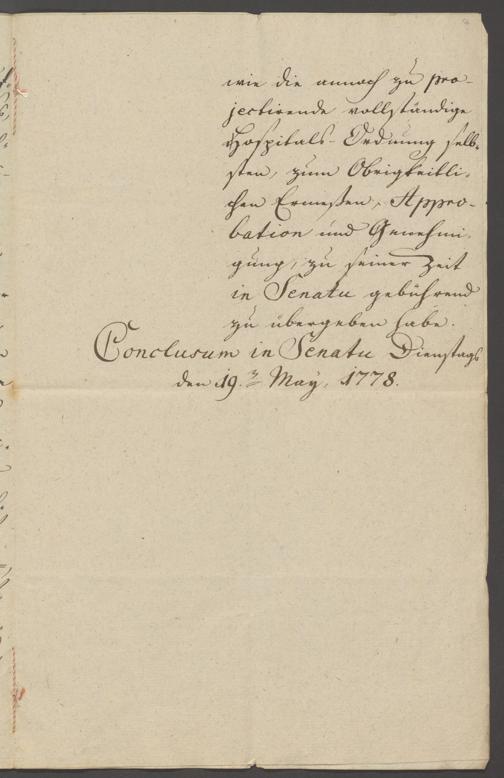 wie die annoch zu pro-
jectirende vollständige
Hospitals-Ordnung selb-
sten, zum Obrigkeitli-
chen Ermeßen, Appro-
bation und Genehmi-
gung, zu seiner Zeit
in Senatu gebührend
zu übergeben habe.
Conclusum in Senatu Dienstags
den 19. May, 1778.